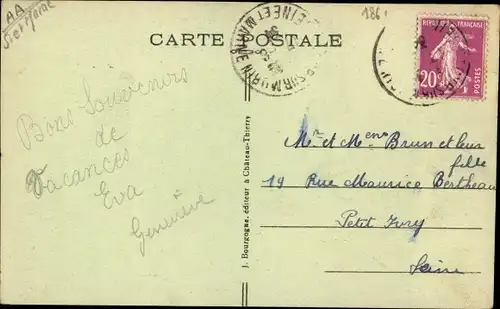 AA
1861
CARTE POSTALE
SEINE ET MARNE
RÉPUBLIQUE FRANÇAISE
20c
POSTES
Bons Souvenirs
de
Vacances
Eva
Geneviève
J. Bourgogne, éditeur à Château-Thierry
Mr et Mme Brun et leur
fille
19 Rue Maurice Bertheau
Petit Ivry
Seine